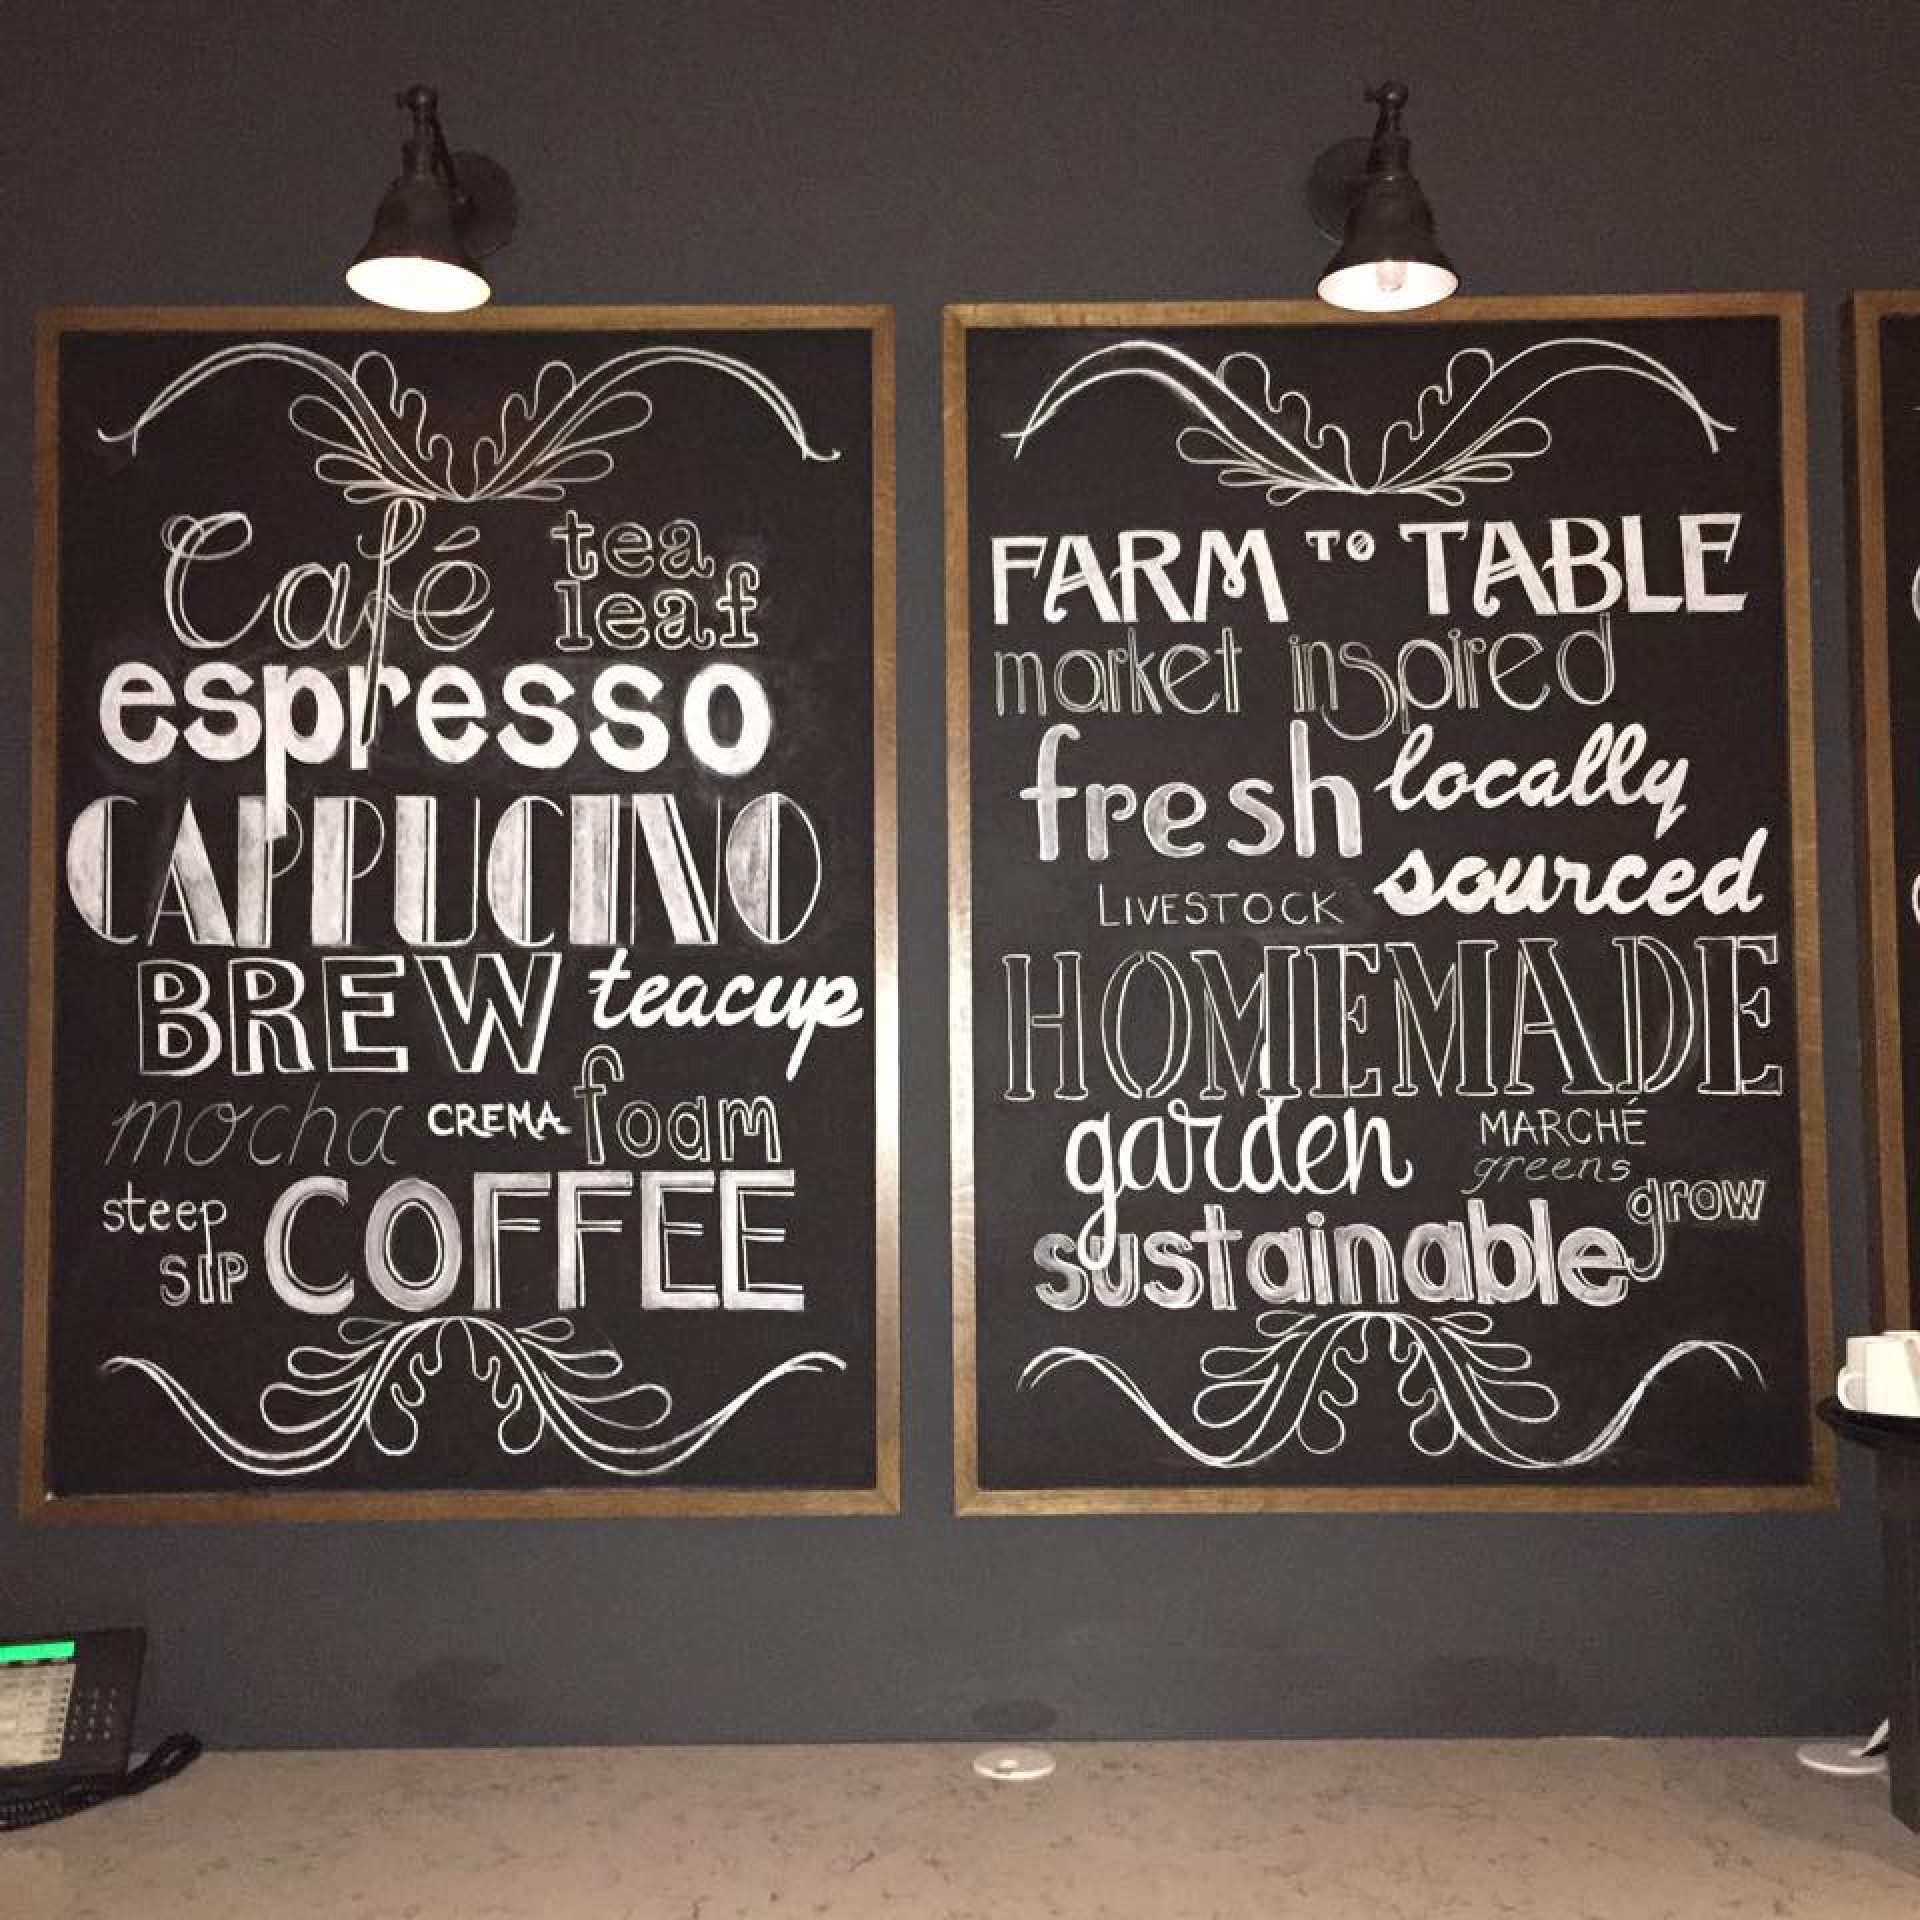 Café tea
leaf
espresso
CAPPUCINO
BREW teacup
mocha CREMA foam
steep
SIP COFFEE
FARM TO TABLE
market inspired
fresh locally
sourced
LIVESTOCK
HOMEMADE
garden MARCHÉ
greens
grow
sustainable